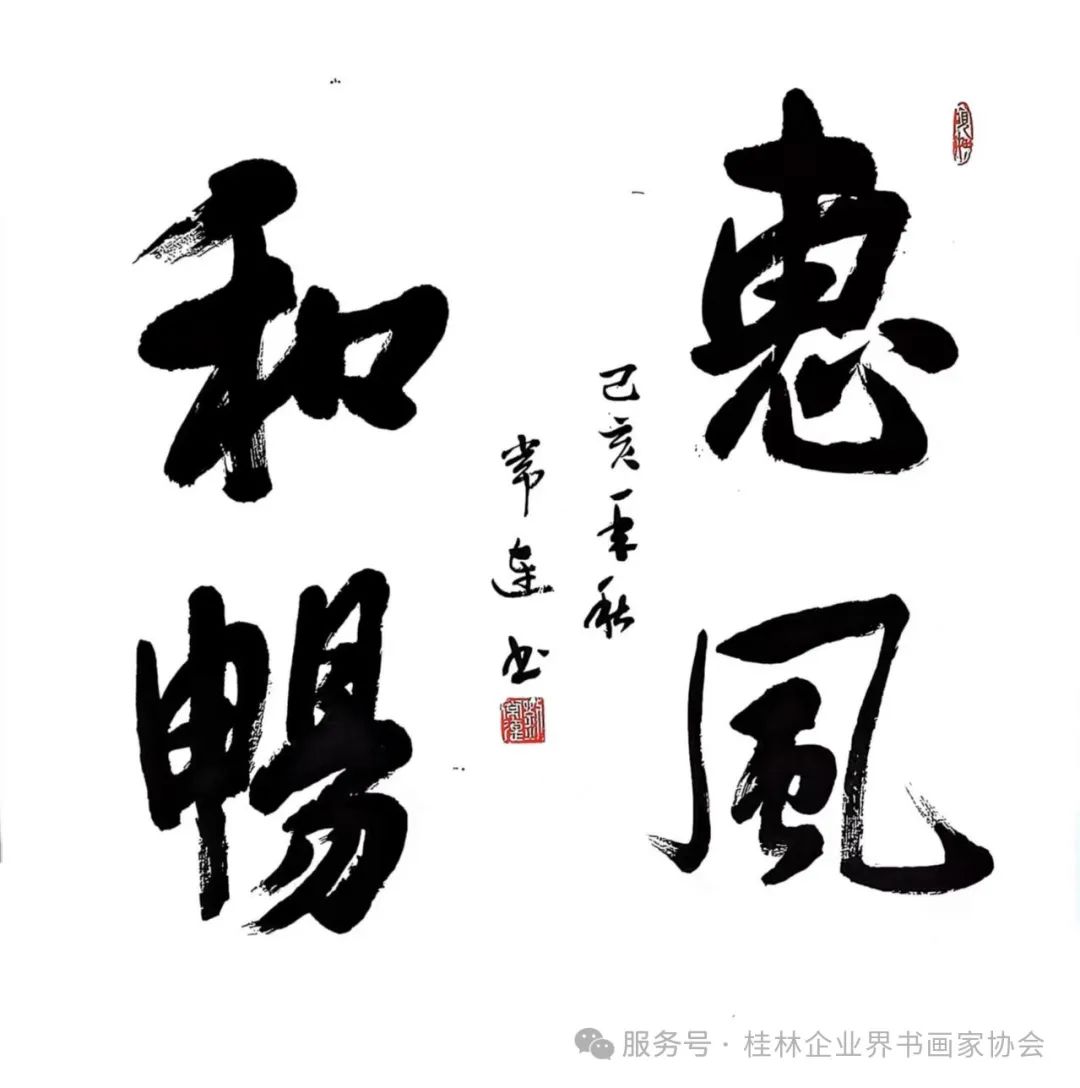 惠風
和暢
己亥年秋
常達书
服务号·桂林企业界书画家协会